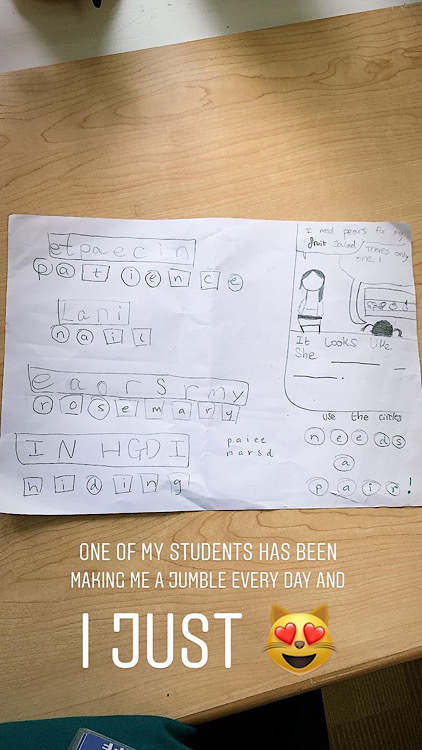 etpaecin
patience
Lani
nail
eaorsrmy
rosemary
IN HGDI
hiding
paiee
narsd
I need pears for my
fruit salad
Theres only
one!
It Looks like
She
use the circles
needs
a
pair!
ONE OF MY STUDENTS HAS BEEN
MAKING ME A JUMBLE EVERY DAY AND
I JUST 😻